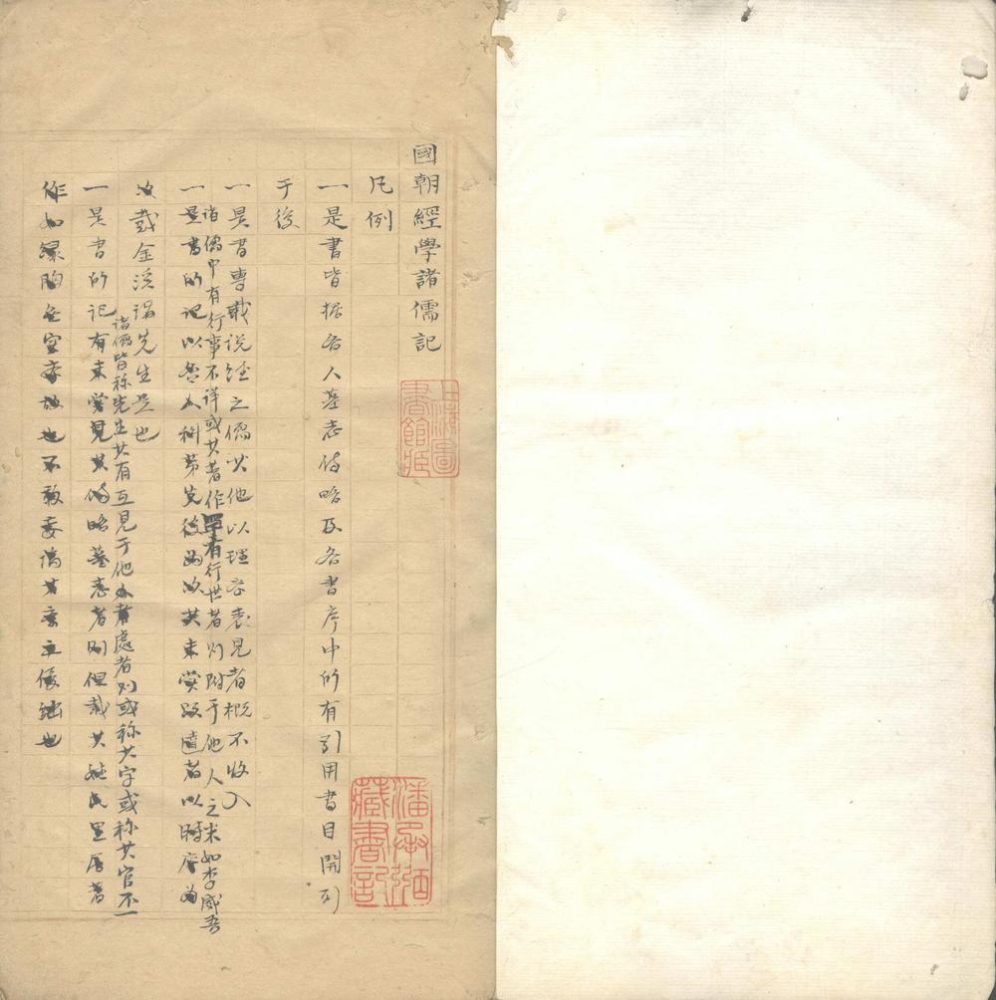 國朝經學諸儒記
上海圖書館藏
凡例
一是書皆據各人墓志傳略及各書序中所有引用書目開列
潘承弼藏書記
于後
一是書專載說經之儒其他以理學表見者概不收入
諸儒中有行事不詳或其著作罕有行世者則附于他人之末如李咸
一是書所記以各人科第先後為次其未嘗及者以時序為
次載金淡先生是也
諸儒皆称先生其有互見于他處者則或称其字或称其官不一
一是書所記有未嘗見其傳略墓志者則但載其姓氏里居著
作如也不敢妄也